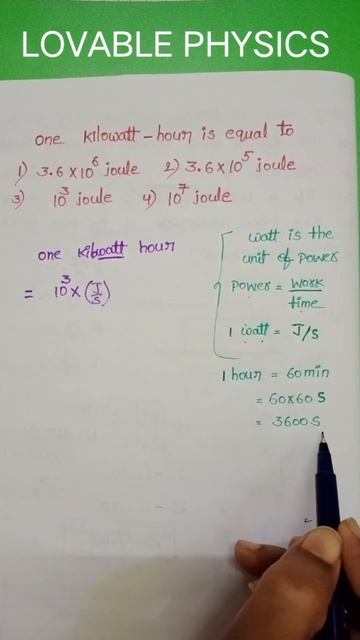 LOVABLE PHYSICS
one kilowatt-hour is equal to
1) 3.6 x 10⁶ joule 2) 3.6 x 10⁵ joule
3) 10³ joule 4) 10⁷ joule
one kilowatt hour
= 10³ x (J/S)
watt is the
unit of power
power = work/time
1 watt = J/S
1 hour = 60 min
= 60x60 S
= 3600 S